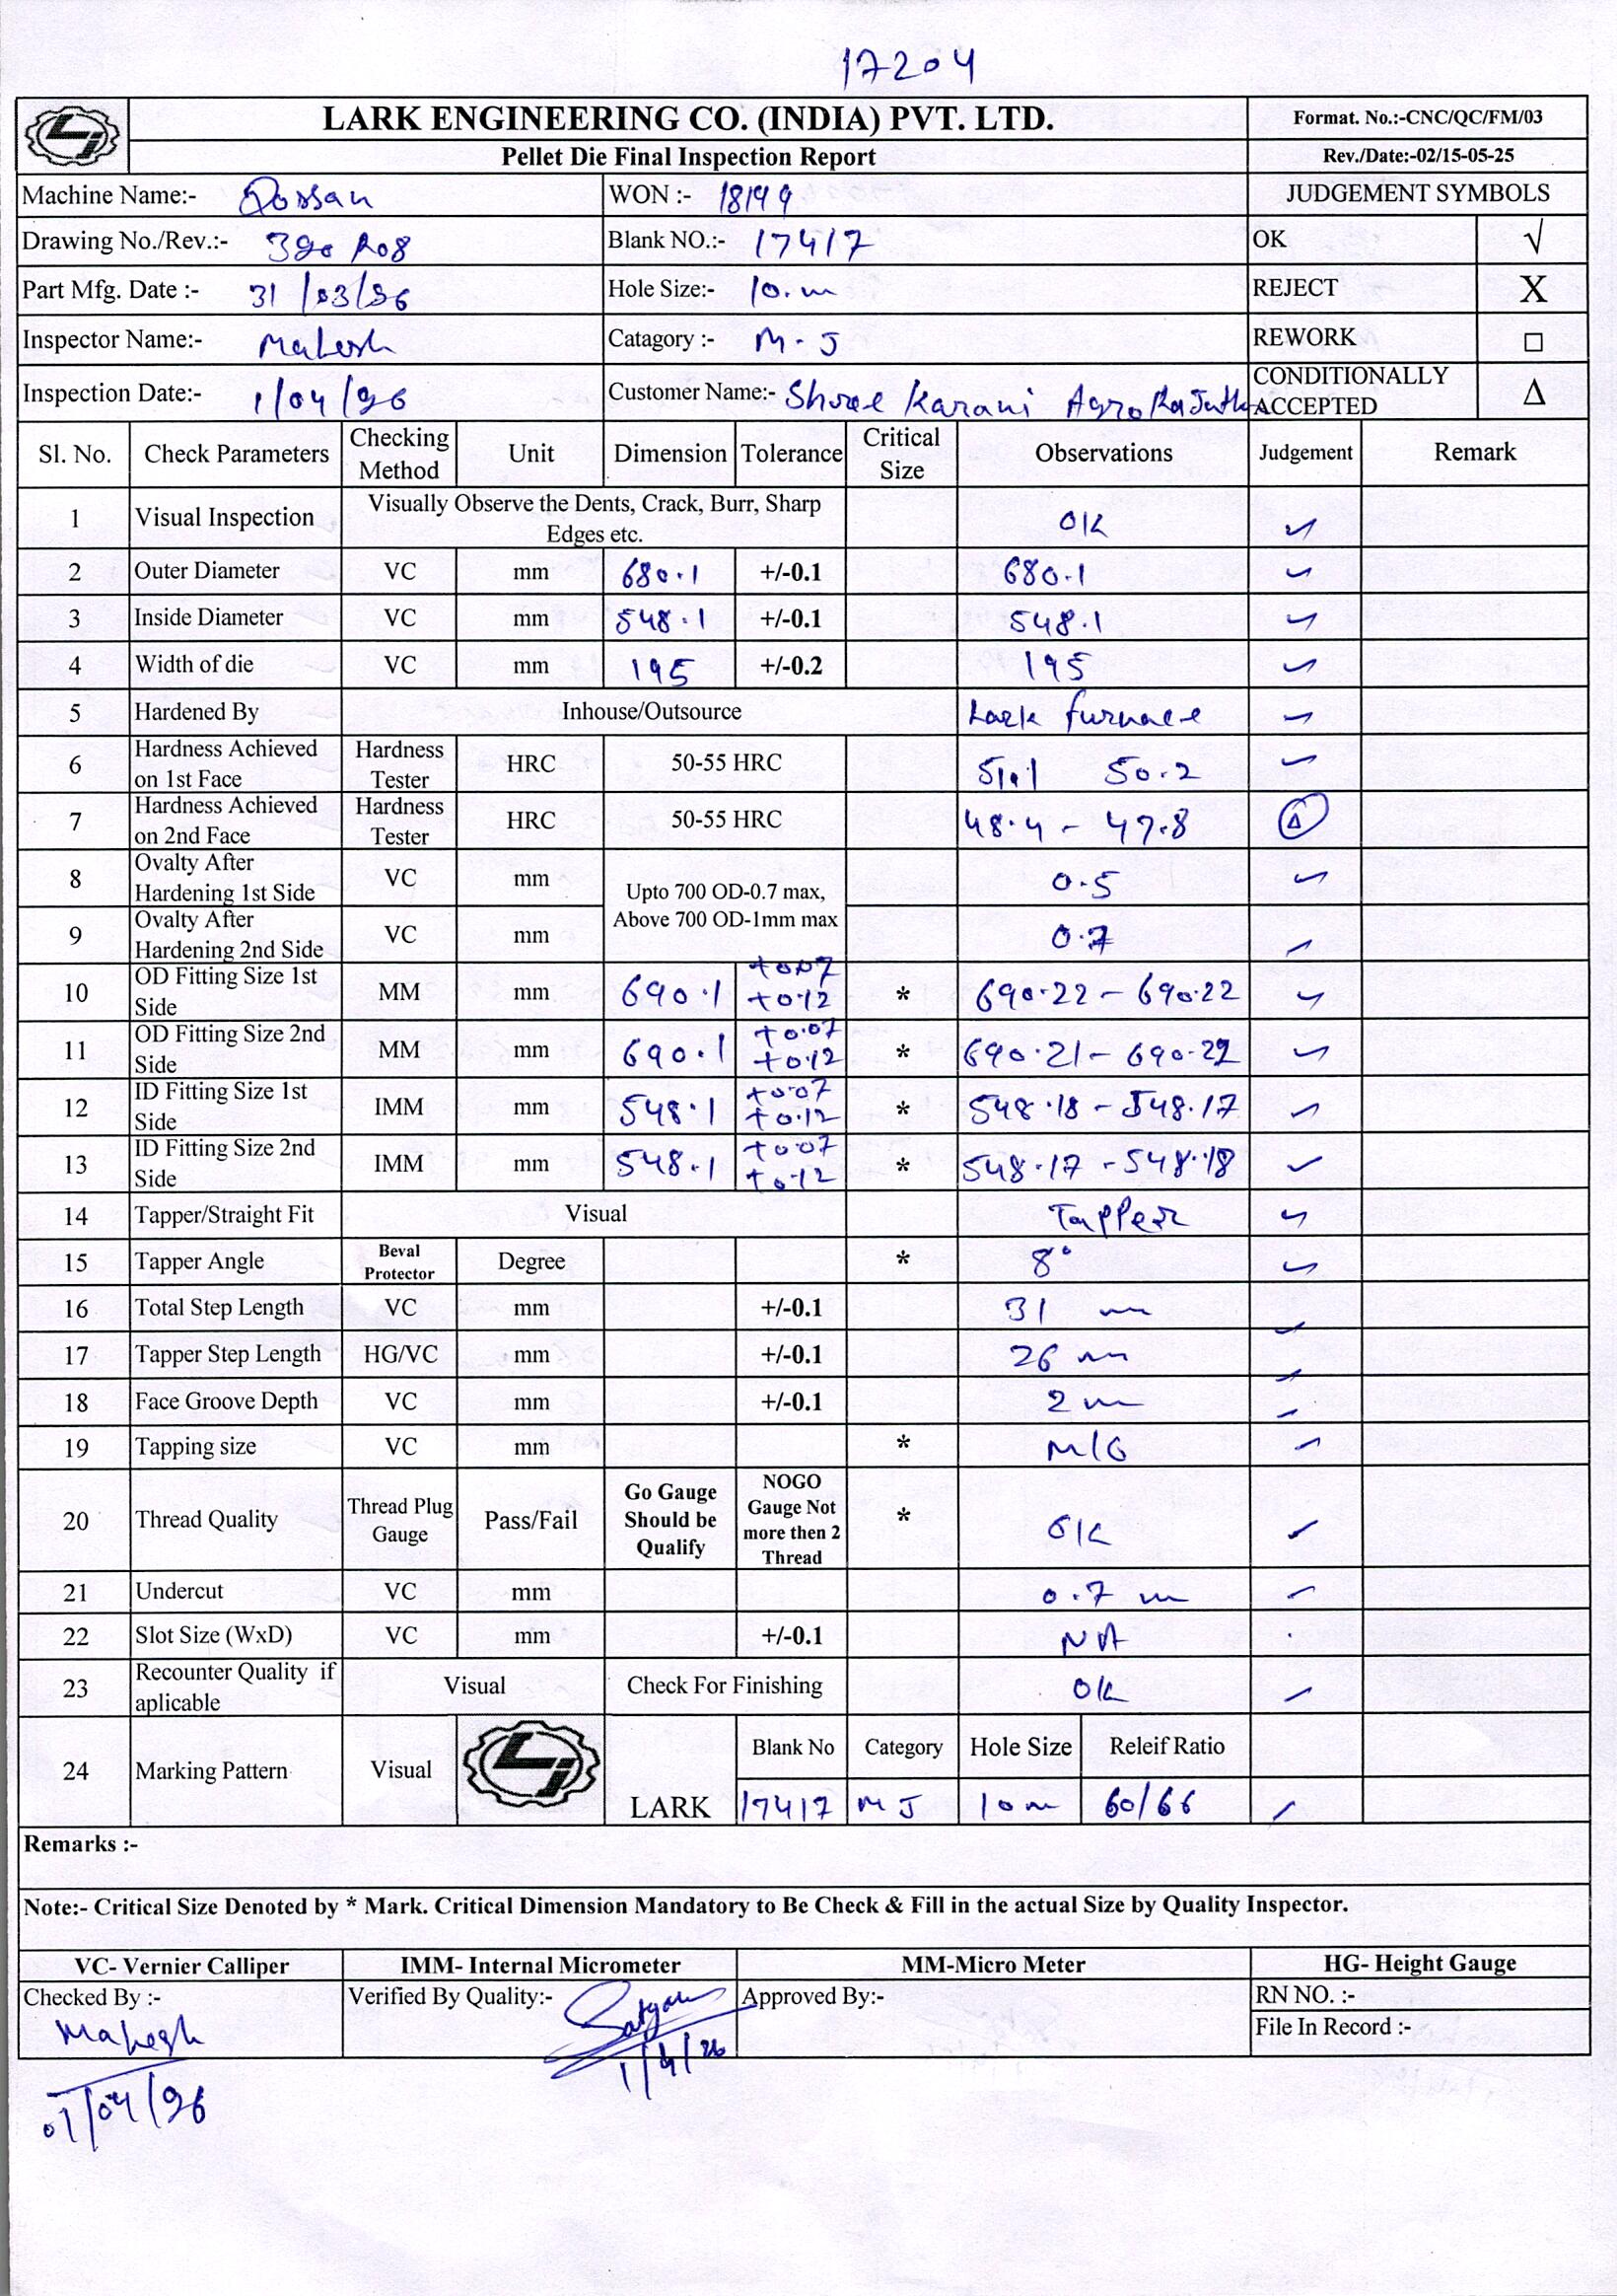 17204
LARK ENGINEERING CO. (INDIA) PVT. LTD.
Format. No.:-CNC/QC/FM/03
Pellet Die Final Inspection Report
Rev./Date:-02/15-05-25
Machine Name:- WON :- 18149 JUDGEMENT SYMBOLS
Drawing No./Rev.:- 390 R08 Blank NO.:- 17417 OK √
Part Mfg. Date :- 31/03/26 Hole Size:- 10.m REJECT X
Inspector Name:- Mahesh Catagory :- M-J REWORK □
Inspection Date:- 1/04/26 Customer Name:- Shree Karani Agro CONDITIONALLY ACCEPTED Δ
Sl. No. Check Parameters Checking Method Unit Dimension Tolerance Critical Size Observations Judgement Remark
1 Visual Inspection Visually Observe the Dents, Crack, Burr, Sharp Edges etc. OK ✓
2 Outer Diameter VC mm 680.1 +/-0.1 680.1 ✓
3 Inside Diameter VC mm 548.1 +/-0.1 548.1 ✓
4 Width of die VC mm 195 +/-0.2 195 ✓
5 Hardened By Inhouse/Outsource Lark furnace ✓
6 Hardness Achieved on 1st Face Hardness Tester HRC 50-55 HRC 51.1 50.2 ✓
7 Hardness Achieved on 2nd Face Hardness Tester HRC 50-55 HRC 48.4 - 47.8 Δ
8 Ovalty After Hardening 1st Side VC mm Upto 700 OD-0.7 max, Above 700 OD-1mm max 0.5 ✓
9 Ovalty After Hardening 2nd Side VC mm 0.7 ✓
10 OD Fitting Size 1st Side MM mm 690.1 +0.07 +0.12 * 690.22 - 690.22 ✓
11 OD Fitting Size 2nd Side MM mm 690.1 +0.07 +0.12 * 690.21 - 690.22 ✓
12 ID Fitting Size 1st Side IMM mm 548.1 +0.07 +0.12 * 548.18 - 548.17 ✓
13 ID Fitting Size 2nd Side IMM mm 548.1 +0.07 +0.12 * 548.17 - 548.18 ✓
14 Tapper/Straight Fit Visual Tapper ✓
15 Tapper Angle Beval Protector Degree * 8° ✓
16 Total Step Length VC mm +/-0.1 31 m ✓
17 Tapper Step Length HG/VC mm +/-0.1 26 m ✓
18 Face Groove Depth VC mm +/-0.1 2 m ✓
19 Tapping size VC mm * M16 ✓
20 Thread Quality Thread Plug Gauge Pass/Fail Go Gauge Should be Qualify NOGO Gauge Not more then 2 Thread * OK ✓
21 Undercut VC mm 0.7 m ✓
22 Slot Size (WxD) VC mm +/-0.1 NA
23 Recounter Quality if aplicable Visual Check For Finishing OK ✓
24 Marking Pattern Visual LARK Blank No Category Hole Size Releif Ratio
17417 MJ 10m 60/66 ✓
Remarks :-
Note:- Critical Size Denoted by * Mark. Critical Dimension Mandatory to Be Check & Fill in the actual Size by Quality Inspector.
VC- Vernier Calliper IMM- Internal Micrometer MM-Micro Meter HG- Height Gauge
Checked By :- Mahesh Verified By Quality:- Satyam Approved By:- RN NO. :-
File In Record :-
1/4/26
01/04/26